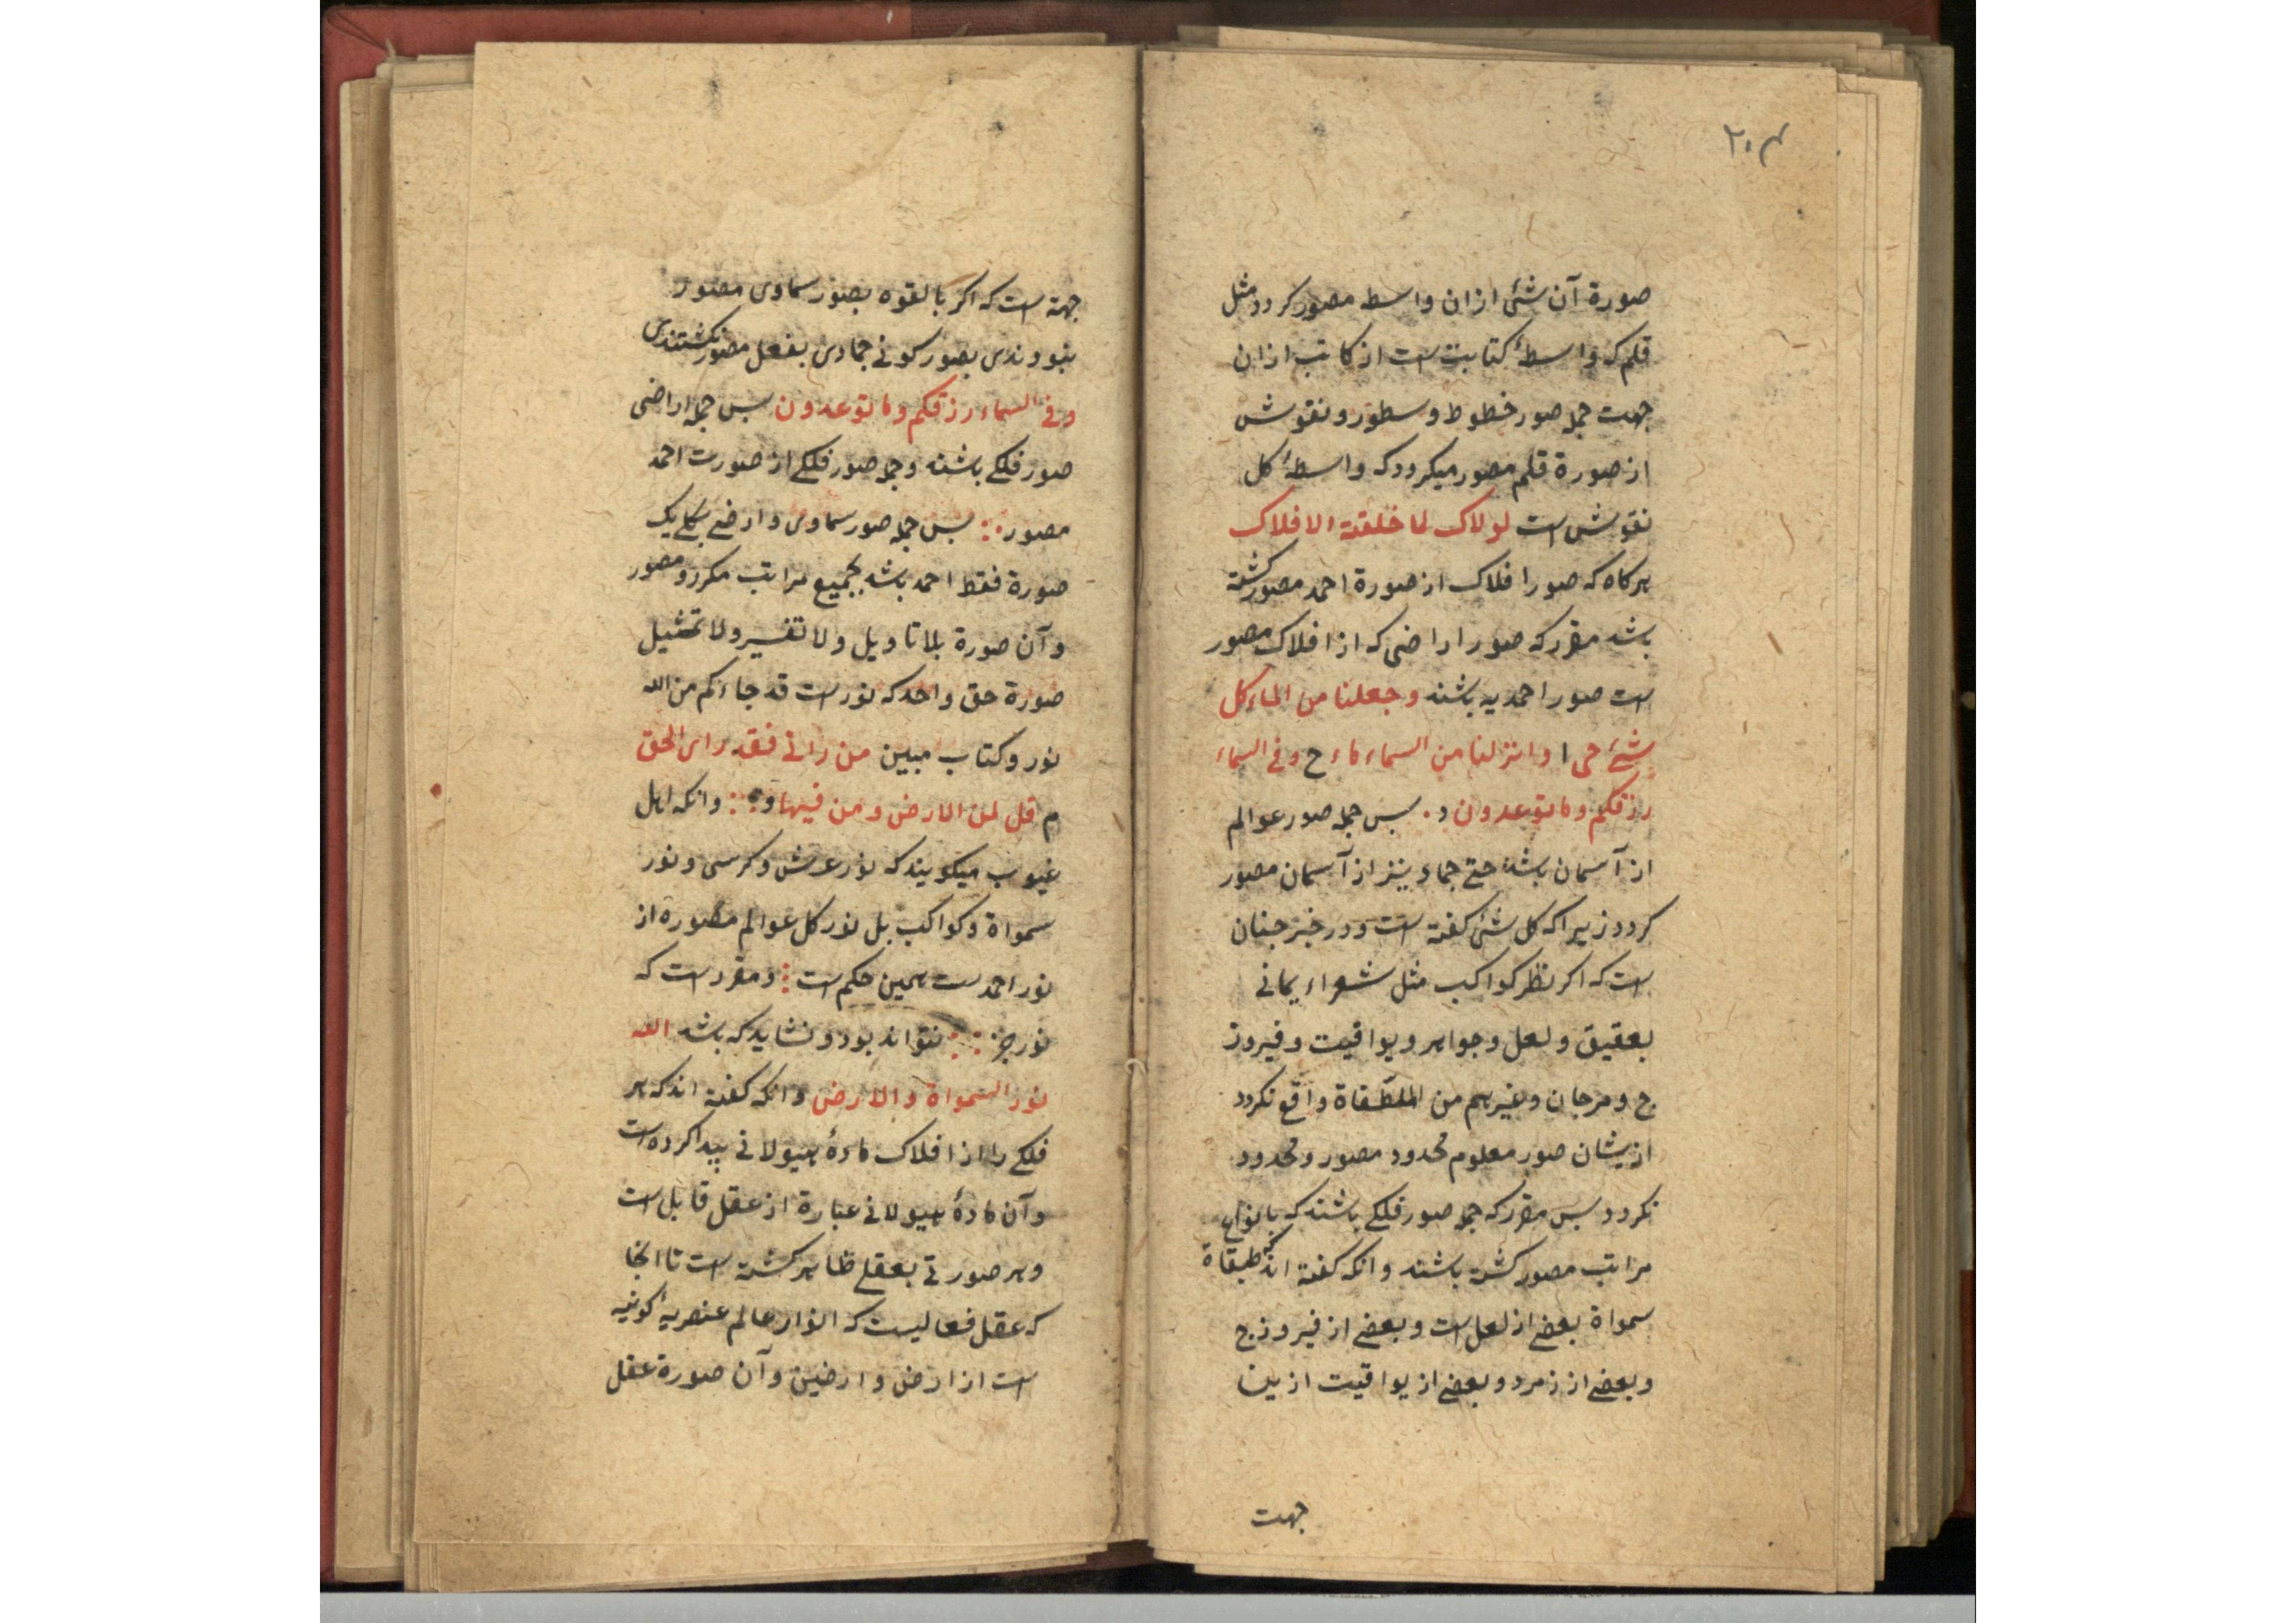 ۲۰۴
صورة آن شئ ازان واسطه مصور كردد مثل
قلم كه واسطۀ كتابت است از كاتب ازان
جهت جمله صور خطوط وسطور ونقوش
از صورة قلم مصور ميكردد كه واسطۀ كل
نقوش است لولاك لما خلقت الافلاك
هركاه كه صور افلاك از صورة احمد مصور كشته
باشد مقرر كه صور اراضى كه از افلاك مصور
است صور احمديه باشند وجعلنا من الماء كل
شئ حى ا وانزلنا من السماء ماء ح وفى السماء
رزقكم وما توعدون د. پس جمله صور عوالم
از آسمان باشد حتى جماد نيز از آسمان مصور
كردد زيرا كه كل شئ كفته است ودر خبر جنان
است كه اكر نظر كواكب مثل شعراء يمانى
بعقيق ولعل وجواهر ويواقيت وفيروز
ج ومرجان وغيرهم من الملطّفاة واقع نكردد
ازيشان صور معلوم محدود مصور ومحدود
نكردد پس مقرر كه جمله صور فلكى باشند كه بانواع
مراتب مصور كشته باشند وانكه كفته اند كه طبقاة
سمواة بعضى از لعل است وبعضى از فيروزج
وبعضى از زمرد وبعضى از يواقيت ازين
جهت
جهة است كه اكر بالقوه بصور سماوى مصور
نبودندى بصور كونى جمادى بفعل مصور نكشتندى
وفى السماء رزقكم وما توعدون پس جمله اراضى
صور فلكى باشند وجمله صور فلكى از صورت احمد
مصور پس جمله صور سماوى وارضى بكل يك
صورة فقط احمد باشد بجميع مراتب مكرر ومصور
وآن صورة بلا تاويل ولا تفسير ولا تمثيل
صورة حق واحد كه نور است قد جاءكم من الله
نور وكتاب مبين من رانى فقد راى الحق
م قل لمن الارض ومن فيها وانكه اهل
غيوب ميكويند كه نور عرش وكرسى ونور
سمواة وكواكب بل نور كل عوالم مصوره از
نور احمد ست همين حكم است ومقرر است كه
نور جز نتواند بود ونشايد كه باشد الله
نور السمواة والارض وانكه كفته اند كه هر
فلكى را از افلاك مادۀ هيولانى پيدا كرده است
وآن مادۀ هيولانى عبارة از عقل قابل است
وهر صورتى بعقلى ظاهر كشته است تا انجا
كه عقل فعاليست كه انوار عالم عنصريۀ كونيه
است از ارض وارضين وآن صورة عقل